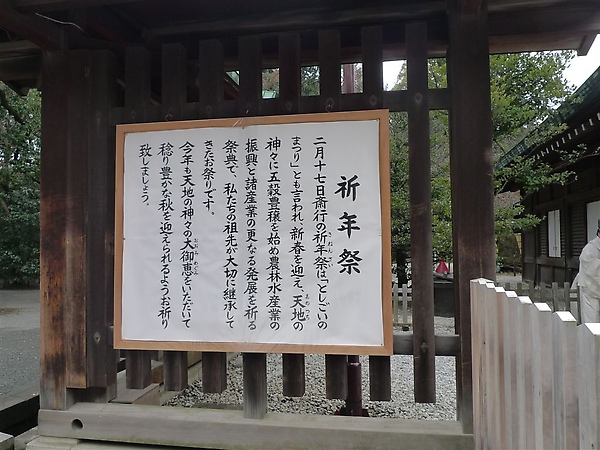 祈年祭
二月十七日斎行の祈年祭は「としごいの
まつり」とも言われ、新春を迎え、天地の
神々に五穀豊穣を始め農林水産業の
振興と諸産業の更なる発展を祈る
祭典で、私たちの祖先が大切に継承して
きたお祭りです。
今年も天地の神々の大御恵をいただいて
稔り豊かな秋を迎えられるようお祈り
致しましょう。